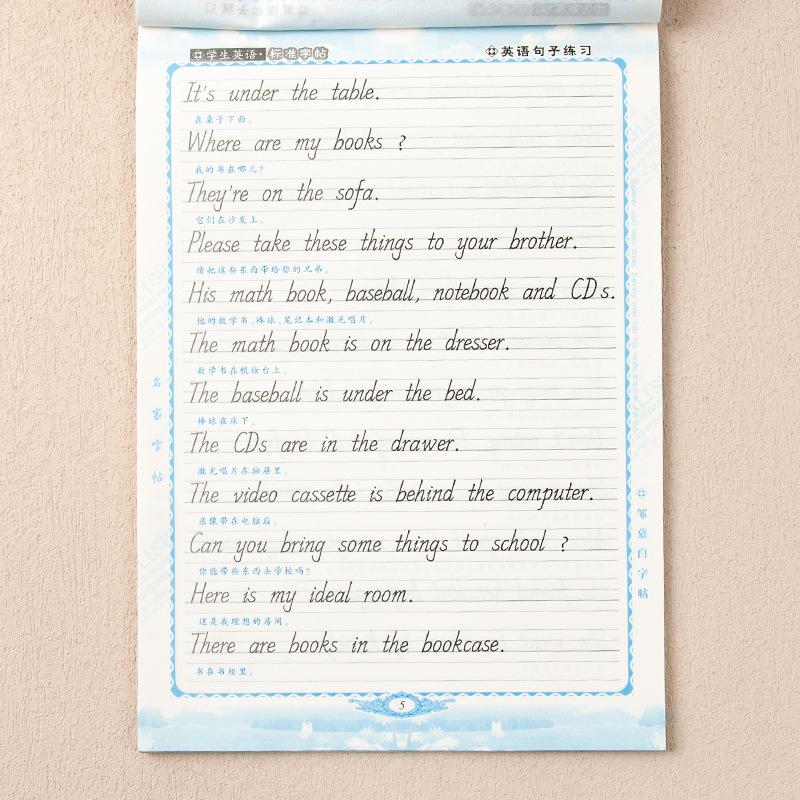 学生英语·标准字帖
英语句子练习
It's under the table.
在桌子下面。
Where are my books ?
我的书在哪儿?
They're on the sofa.
它们在沙发上。
Please take these things to your brother.
请把这些东西带给你的兄弟。
His math book, baseball, notebook and CDs.
他的数学书、棒球、笔记本和激光唱片。
The math book is on the dresser.
数学书在梳妆台上。
The baseball is under the bed.
棒球在床下。
The CDs are in the drawer.
激光唱片在抽屉里。
The video cassette is behind the computer.
录像带在电脑后。
Can you bring some things to school ?
你能带些东西去学校吗?
Here is my ideal room.
这是我理想的房间。
There are books in the bookcase.
书在书柜里。
名家字帖
邹慕白字帖
5